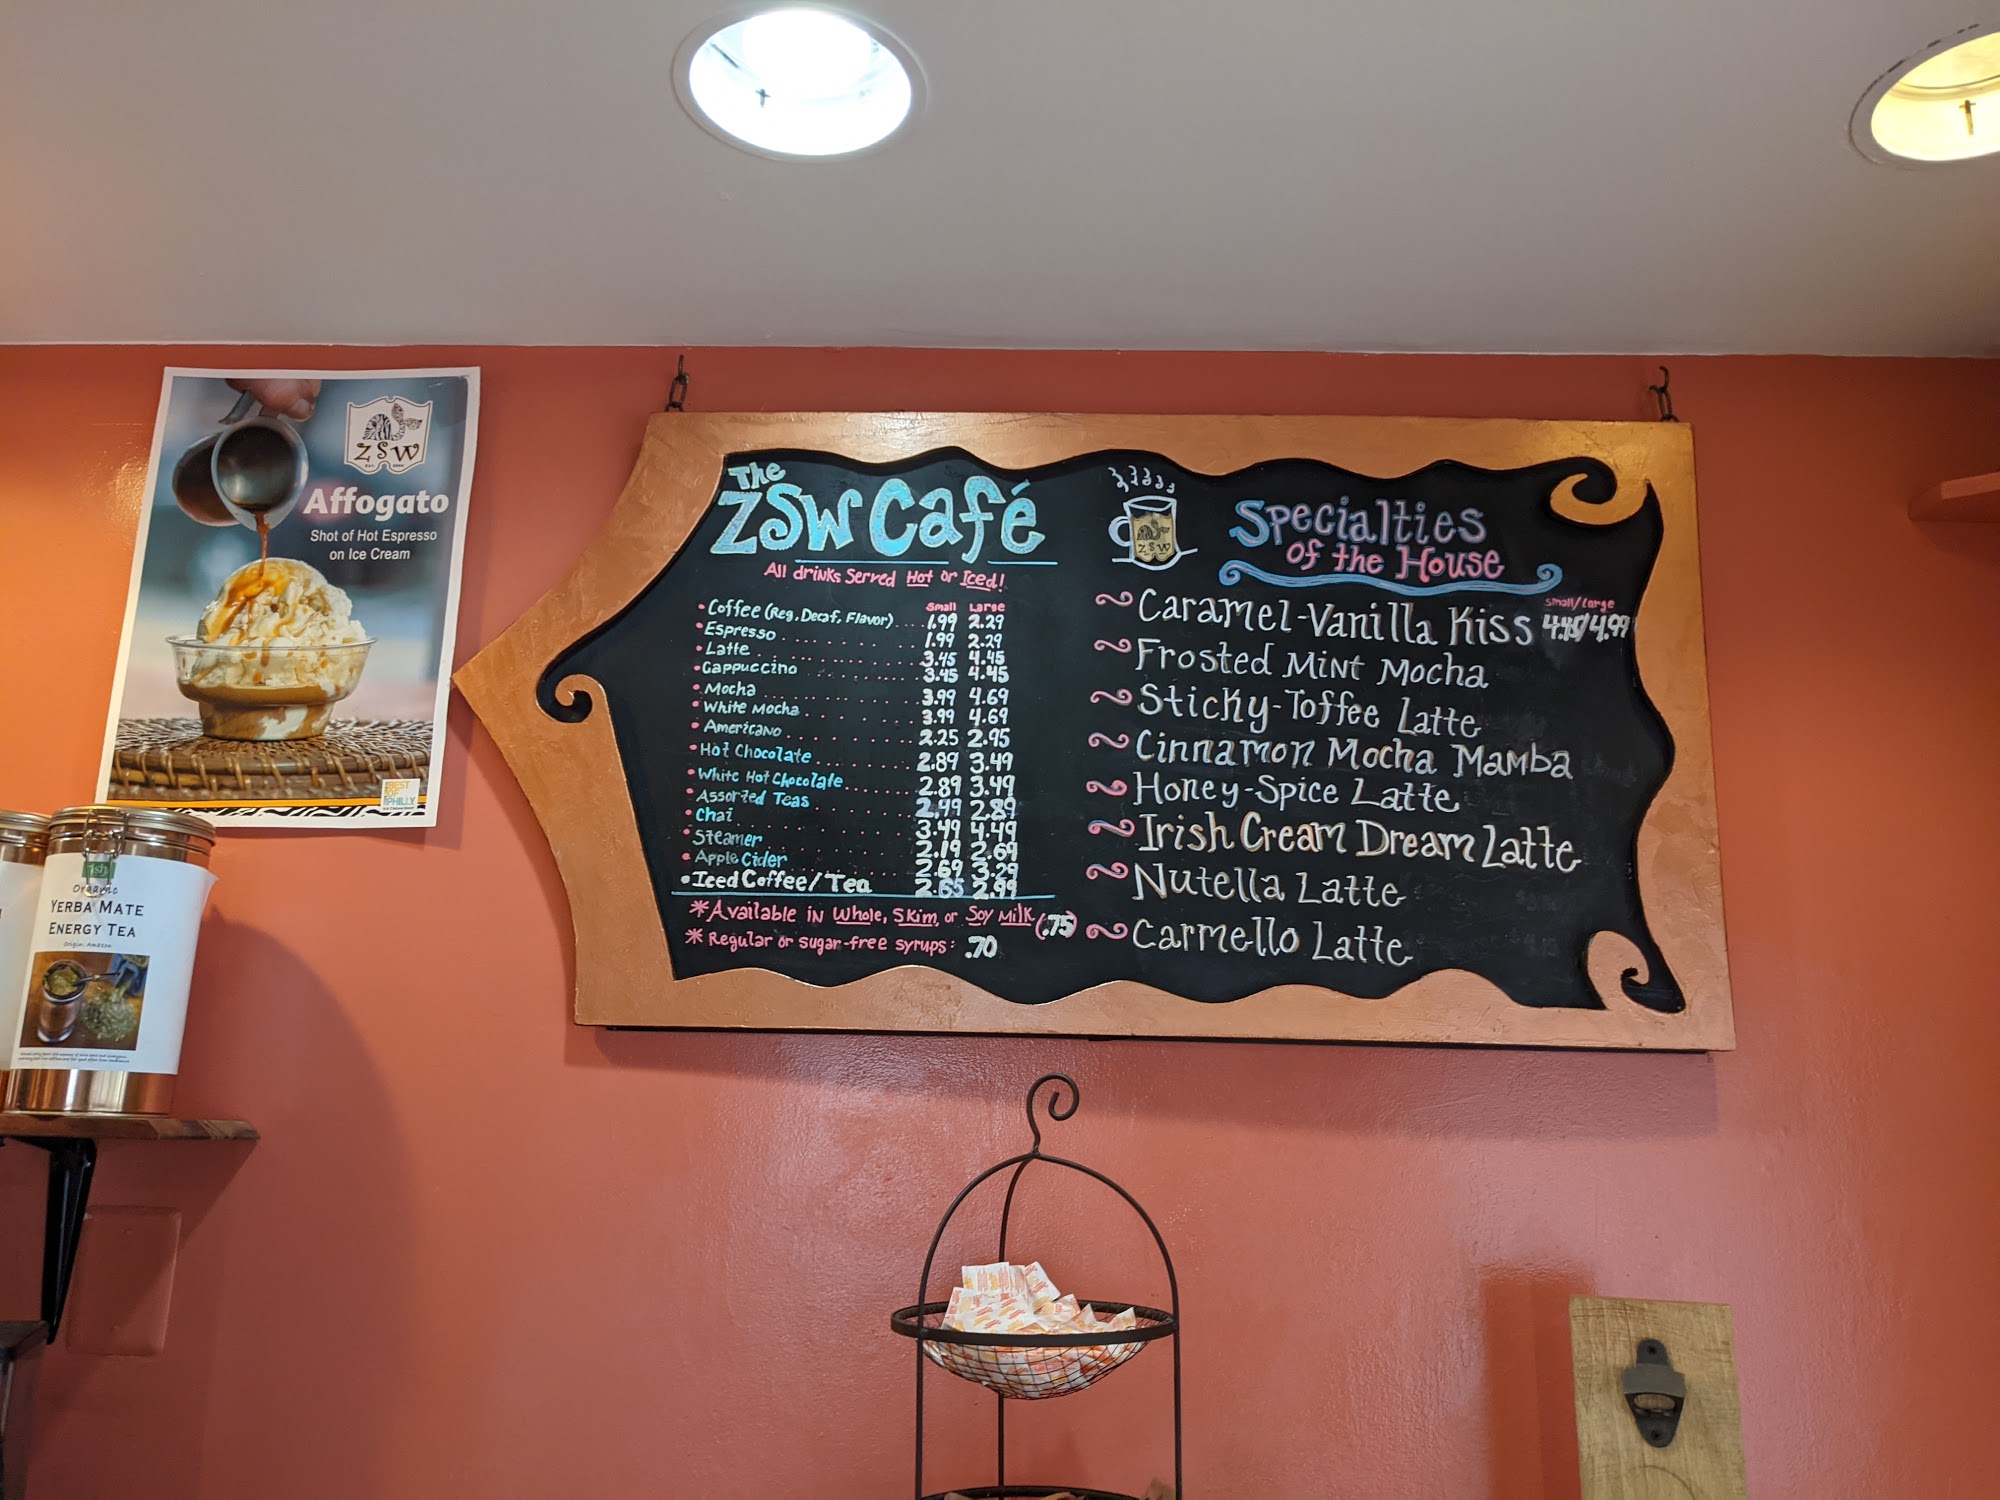 ZSW
EST. 2004
Affogato
Shot of Hot Espresso
on Ice Cream
BEST
OF
PHILLY
ish
Organic
YERBA MATE
ENERGY TEA
Origin: Amazon
The
ZSW Café
All drinks Served Hot or Iced!
Small Large
• Coffee (Reg. Decaf, Flavor) .... 1.99 2.29
• Espresso ........... 1.99 2.29
• Latte ............ 3.45 4.45
• Cappuccino ........ 3.45 4.45
• Mocha ............ 3.99 4.69
• White Mocha ........ 3.99 4.69
• Americano ......... 2.25 2.95
• Hot Chocolate ....... 2.89 3.49
• White Hot Chocolate ..... 2.89 3.49
• Assorted Teas ....... 2.49 2.89
• Chai ............ 3.49 4.49
• Steamer .......... 2.19 2.69
• Apple Cider ........ 2.69 3.29
• Iced Coffee/Tea 2.65 2.99
*Available in Whole, Skim, or Soy Milk (.75)
* Regular or sugar-free syrups: .70
ZSW
Specialties
of the House
small/large
Caramel-Vanilla Kiss 4.45/4.99
Frosted Mint Mocha
Sticky-Toffee Latte
Cinnamon Mocha Mamba
Honey-Spice Latte
Irish Cream Dream Latte
Nutella Latte
Carmello Latte